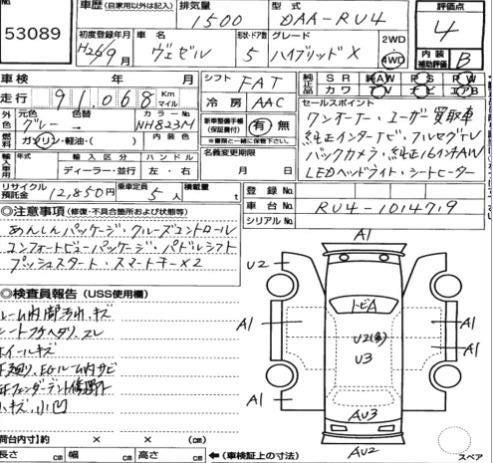 53089
車歴 (自家用以外は記入)
排気量
1500
型式
DAA-RU4
評価点
4
初度登録年月
H26/9月
車名
ヴェゼル
形状・ドア数
5
グレード
ハイブリッドX
2WD
4WD
内装
補助評価
B
車検
年
月
シフト
FAT
純正品
SR
AW
PS
PW
カワ
TV
ナビ
エアB
走行
91,068
Km
マイル
冷房
AAC
セールスポイント
ワンオーナー・ユーザー買取車
純正インターナビ・フルセグTV
バックカメラ・純正16インチAW
LEDヘッドライト・シートヒーター
外色
元色
色替
グレー
カラーNo.
NH823M
新車整備手帳
(保証書付)
有 無
ガソリン・軽油・( )
内装色
名義変更期限
月 日
輸入車
年式
輸入区分
ハンドル
ディーラー・並行
左・右
リサイクル
預託金
12,850円
乗車定員
5
積載量
t
登録No.
車台No.
RU4-1014719
シリアルNo.
◎注意事項 (修復・不具合箇所および状態等)
あんしんパッケージ・クルーズコントロール
コンフォートビューパッケージ・パドルシフト
プッシュスタート・スマートキー×2
◎検査員報告 (USS使用欄)
ルーム内障汚れ、キズ
シートフケヘタリ、スレ
ホイールキズ
EGルーム内サビ
小キズ、小凹
A1
U2
トビA
A1
A1
U2(多)
U3
A1
A1
AU3
AU2
スペア
荷台内寸】約 × × (㎝)
長さ ㎝ 幅 ㎝ 高さ ㎝
←(車検証上の寸法)